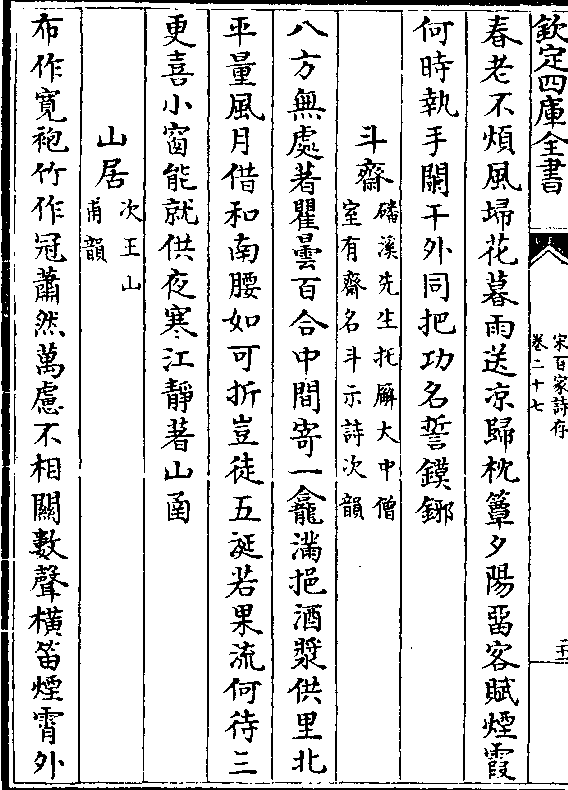 欽定四庫全書
宋百家詩存
卷二十七
二十三
春老不煩風埽花暮雨送凉歸枕簟夕陽留客賦煙霞
何時執手闌干外同把功名誓鏌鎁
斗齋
磻溪先生托廨大中僧
室有齋名斗示詩次韻
八方無處著瞿曇百合中間寄一龕滿挹酒漿供里北
平量風月借和南腰如可折豈徒五涎若果流何待三
更喜小窗能就供夜寒江靜著山函
山居
次王山
甫韻
布作寛袍竹作冠蕭然萬慮不相關數聲橫笛煙霄外